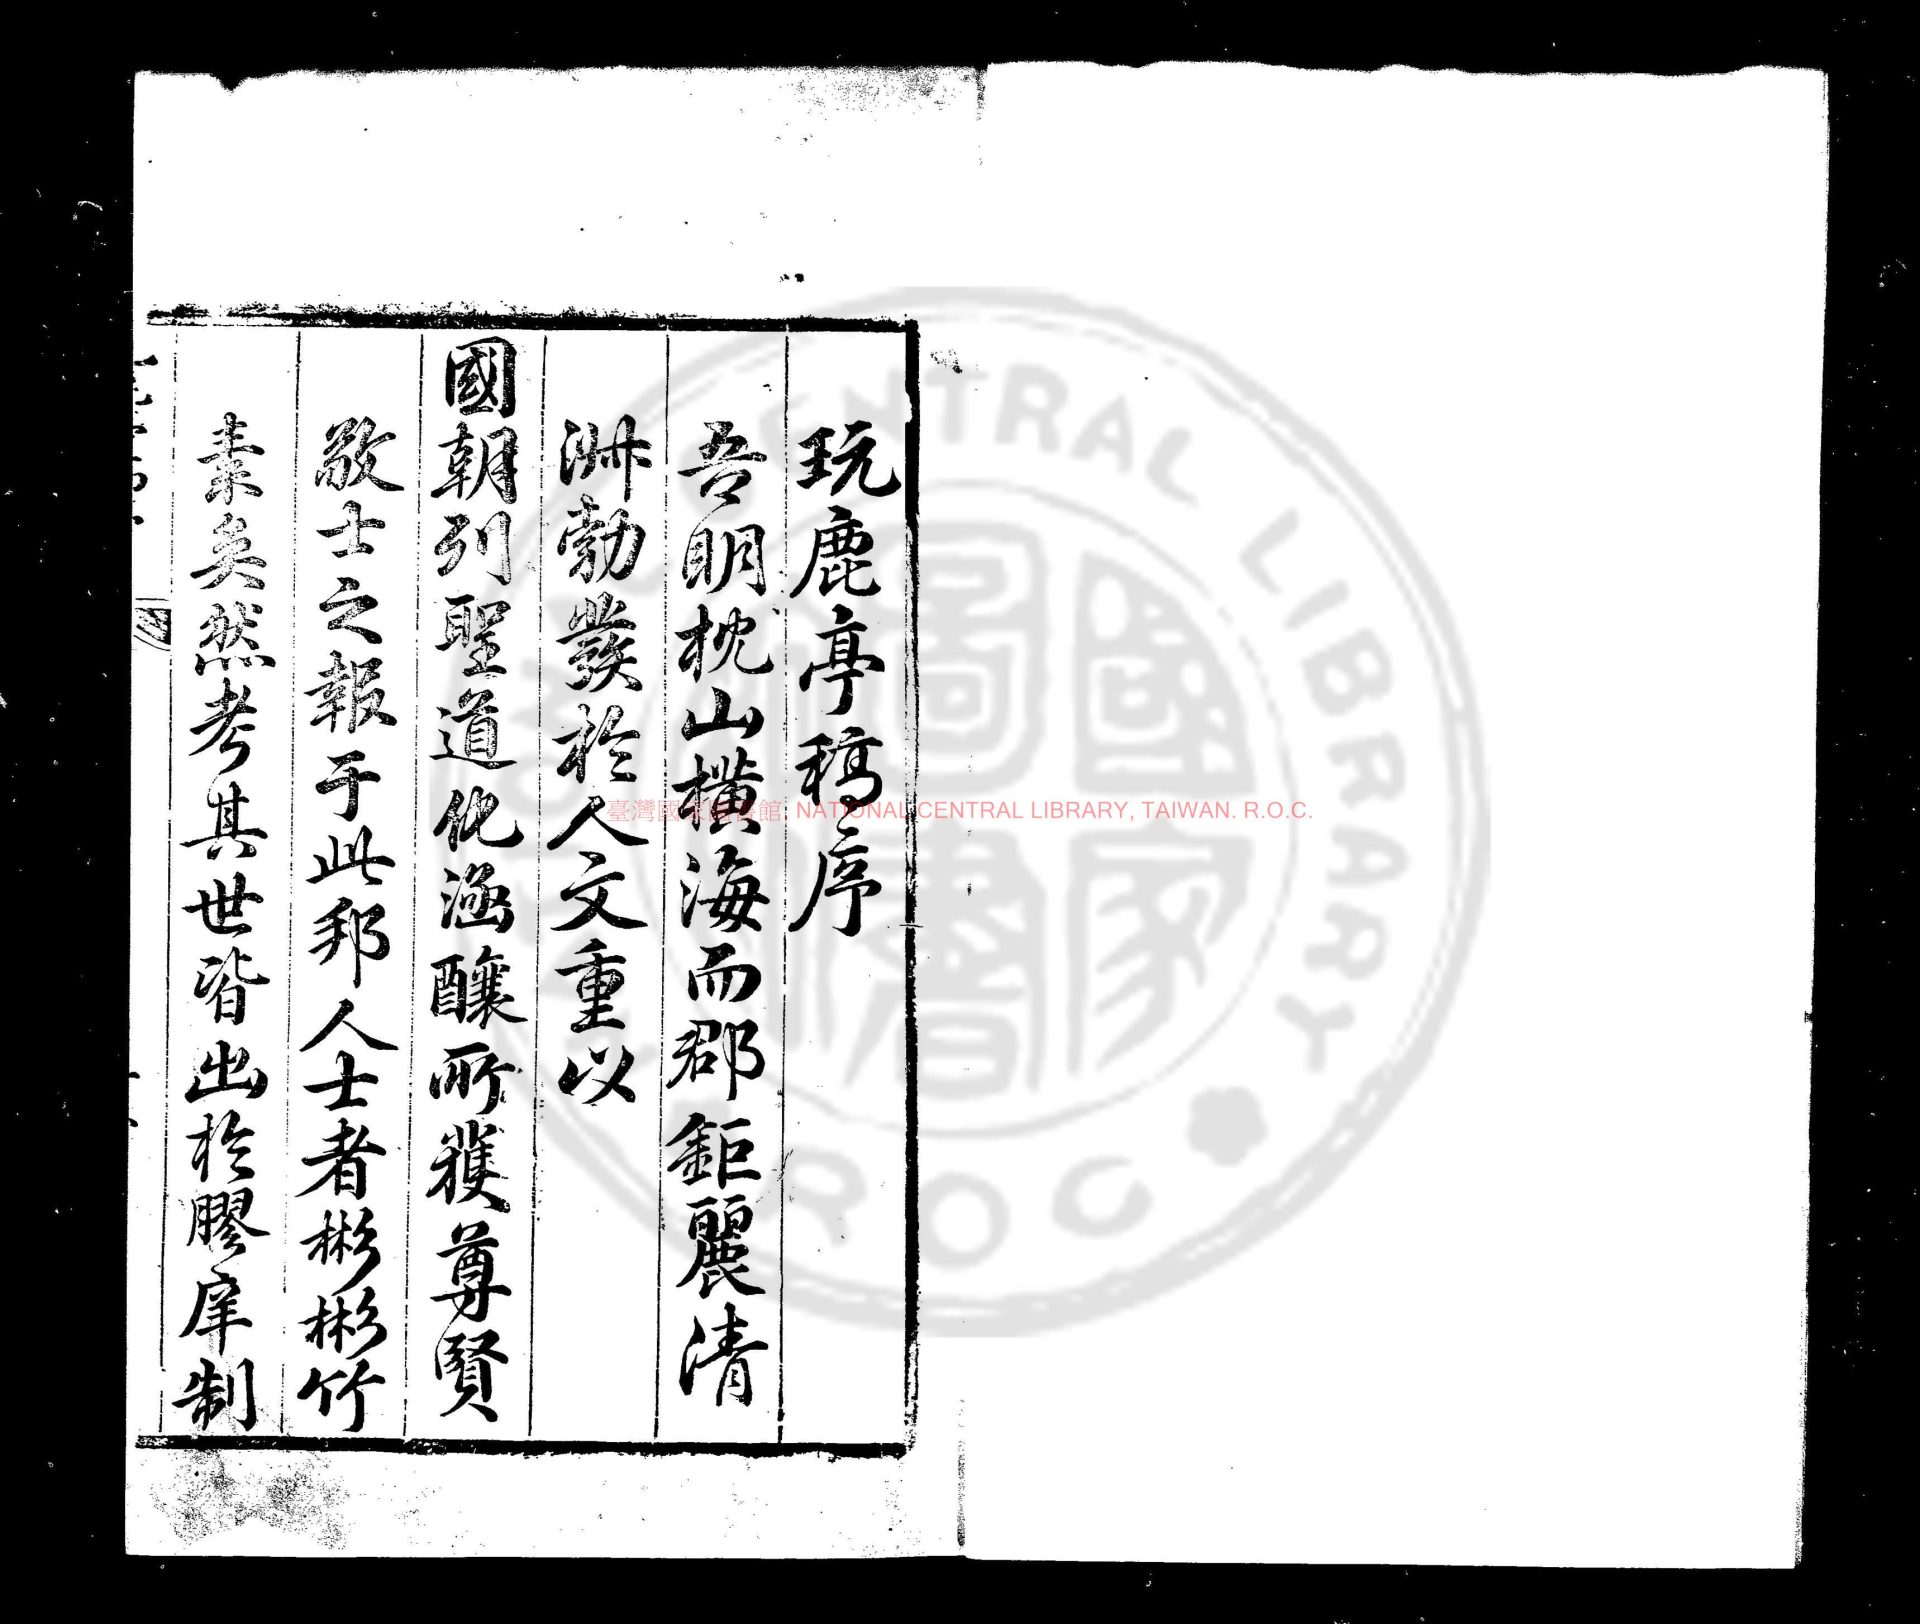 玩鹿亭稿序
吾明枕山橫海而郡鉅麗清
淋勃發於人文重以
國朝列聖道化涵釀所獲尊賢
敬士之報于此邦人士者彬彬竹
素矣然考其世皆出於膠庠制
臺灣國家圖書館, NATIONAL CENTRAL LIBRARY, TAIWAN. R.O.C.
CENTRAL LIBRARY
R O C
國家圖書